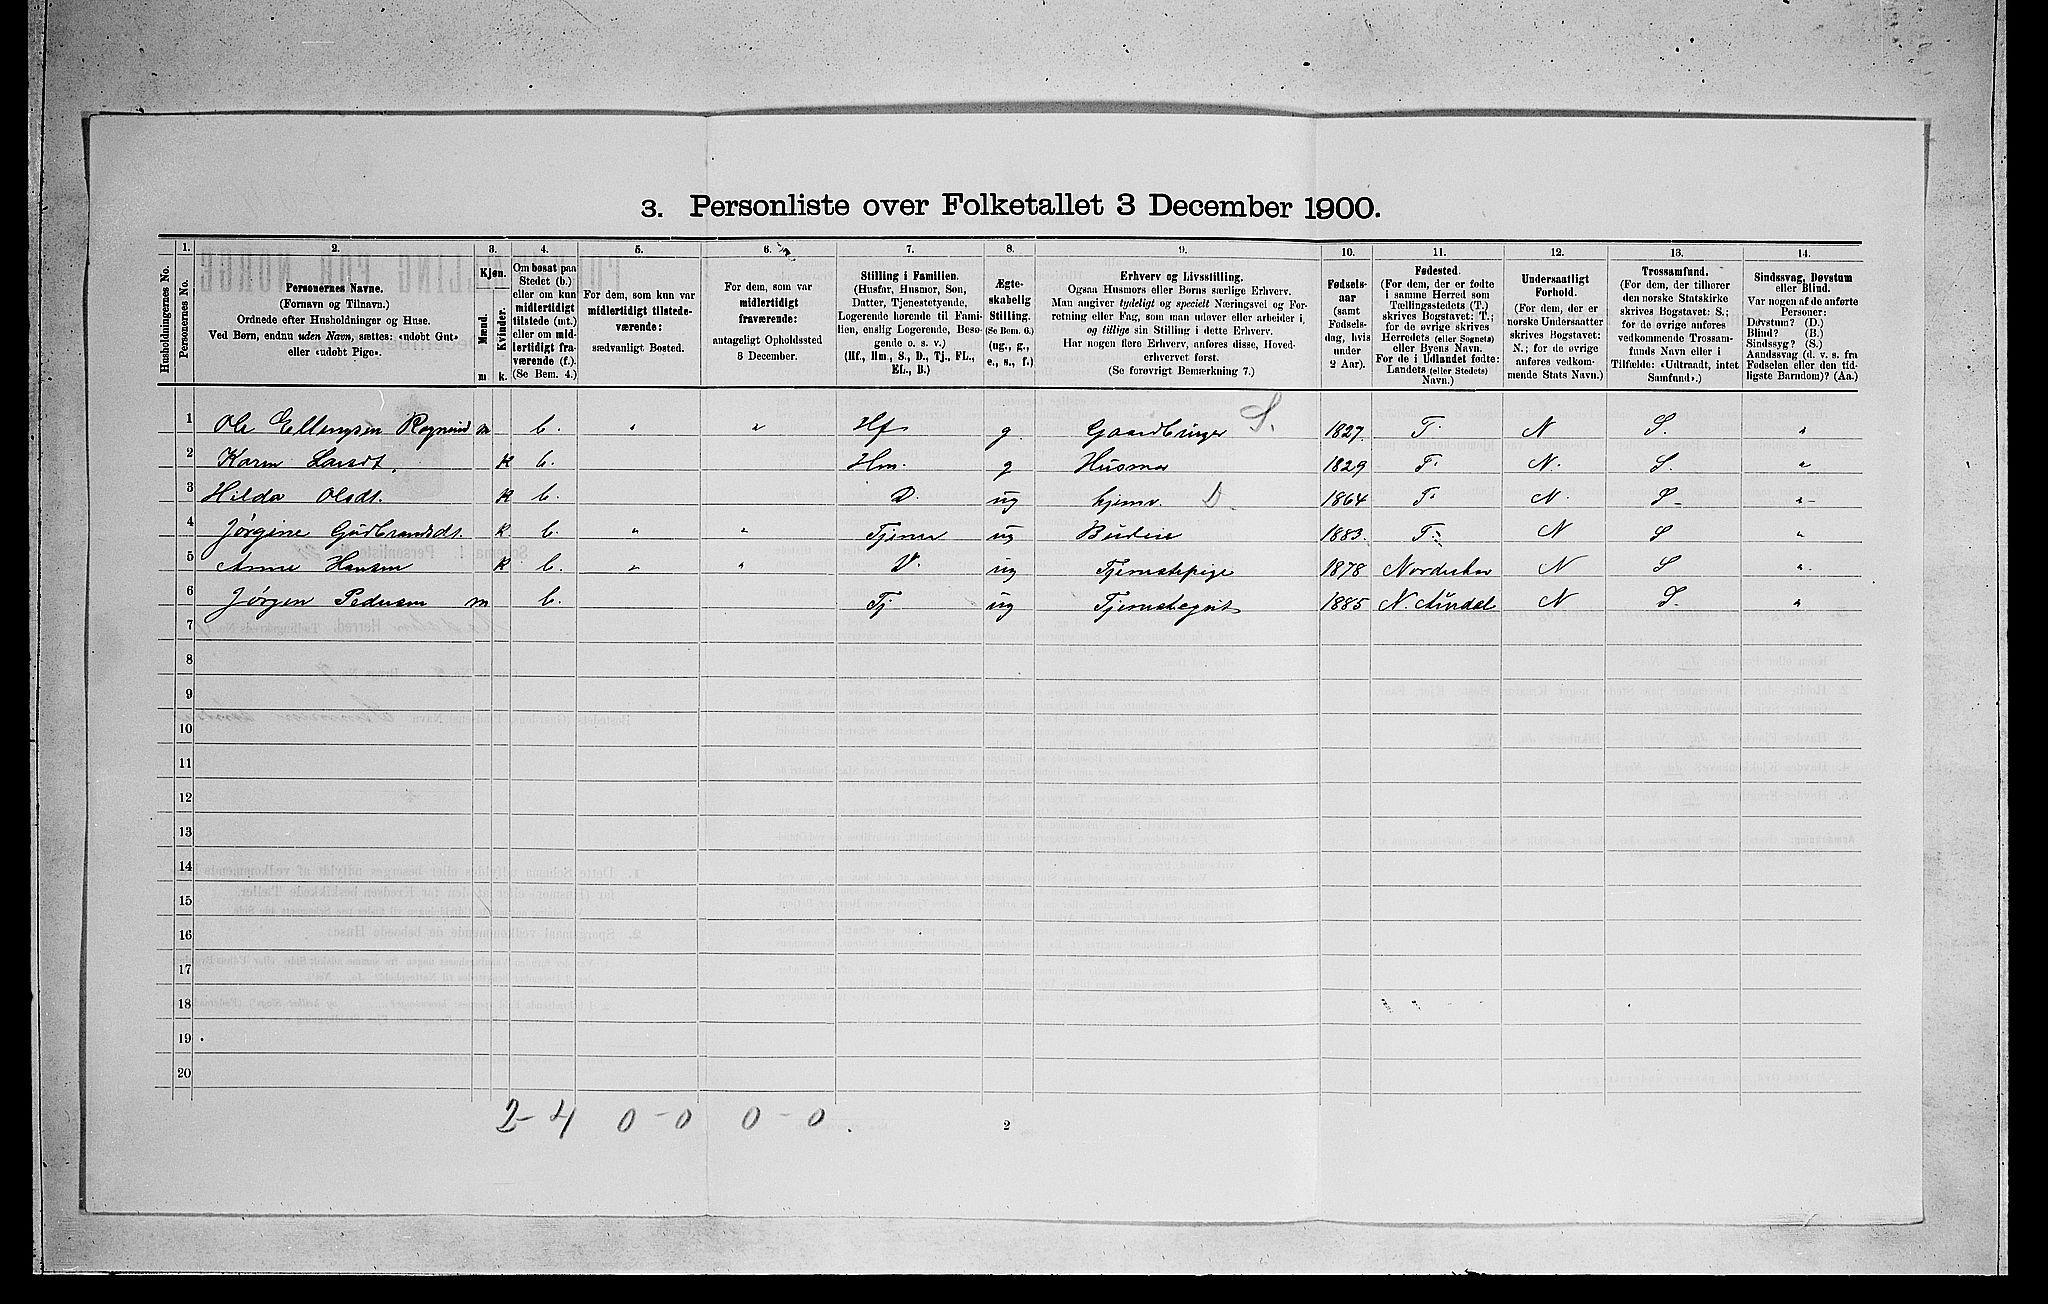 3. Personliste over Folketallet 3 December 1900.
1. 2. 3. 4. 5. 6. 7. 8. 9. 10. 11. 12. 13. 14.
Husholdningernes No.
Personernes No.
Personernes Navne.
(Fornavn og Tilnavn.)
Ordnede efter Husholdninger og Huse.
Ved Børn, endnu uden Navn, sættes: «udøbt Gut»
eller «udøbt Pige».
Kjøn.
Mænd.
Kvinder.
m k.
Om bosat paa
Stedet (b.)
eller om kun
midlertidigt
tilstede (mt.)
eller om mid-
lertidigt fra-
værende (f.)
(Se Bem. 4.)
For dem, som kun var
midlertidigt tilstede-
værende:
sædvanligt Bosted.
For dem, som var
midlertidigt
fraværende:
antageligt Opholdssted
3 December.
Stilling i Familien.
(Husfar, Husmor, Søn,
Datter, Tjenestetyende,
Logerende hørende til Fami-
lien, enslig Logerende, Besø-
gende o. s. v.)
(Hf., Hm., S., D., Tj., FL.,
EL., B.)
Ægte-
skabelig
Stilling.
(Se Bem. 6.)
(ug., g.,
e., s., f.)
Erhverv og Livsstilling.
Ogsaa Husmors eller Børns særlige Erhverv.
Man angiver tydeligt og specielt Næringsvei og For-
retning eller Fag, som man udøver eller arbeider i,
og tillige sin Stilling i dette Erhverv.
Har nogen flere Erhverv, anføres disse, Hoved-
erhvervet først.
(Se forøvrigt Bemærkning 7.)
Fødsels-
aar
(samt
Fødsels-
dag, hvis
under
2 Aar).
Fødested.
(For dem, der er fødte
i samme Herred som
Tællingsstedets (T.)
skrives Bogstavet: T.;
for de øvrige skrives
Herredets (eller Sognets)
eller Byens Navn.
For de i Udlandet fødte:
Landets (eller Stedets)
Navn.)
Undersaatligt
Forhold.
(For dem, der er
norske Undersaatter
skrives Bogstavet:
N.; for de øvrige
anføres vedkom-
mende Stats Navn.)
Trossamfund.
(For dem, der tilhører
den norske Statskirke
skrives Bogstavet: S.;
for de øvrige anføres
vedkommende Trossam-
funds Navn eller i
Tilfælde: «Udtraadt, intet
Samfund».)
Sindssvag, Døvstum
eller Blind.
Var nogen af de anførte
Personer:
Døvstum? (D.)
Blind? (B.)
Sindssyg? (S.)
Aandssvag (d. v. s. fra
Fødselen eller den tid-
ligste Barndom)? (Aa.)
1 Ole Ellingsen Rognerud m b. " " Hf g. Gaardbruger S. 1827. T. N S. "
2 Karen Larsdt. k b. Hm. g Husmor 1829 T. N. S. "
3 Hilda Olsdt. k b. D. ug hjemv. D. 1864 T. N. S "
4 Jørgine Gudbrandsdt. k b. " " Tjener ug Budeie 1883. T. N S "
5 Anne Hansen k b. " " D. ug Tjenestepige 1878 Norderhov N S "
6 Jørgen Pedersen m b. Tj ug Tjenestegut 1885 N. Aurdal N S. "
7
8
9
10
11
12
13
14
15
16
17
18
19
20
2-4 0-0 0-0.
2